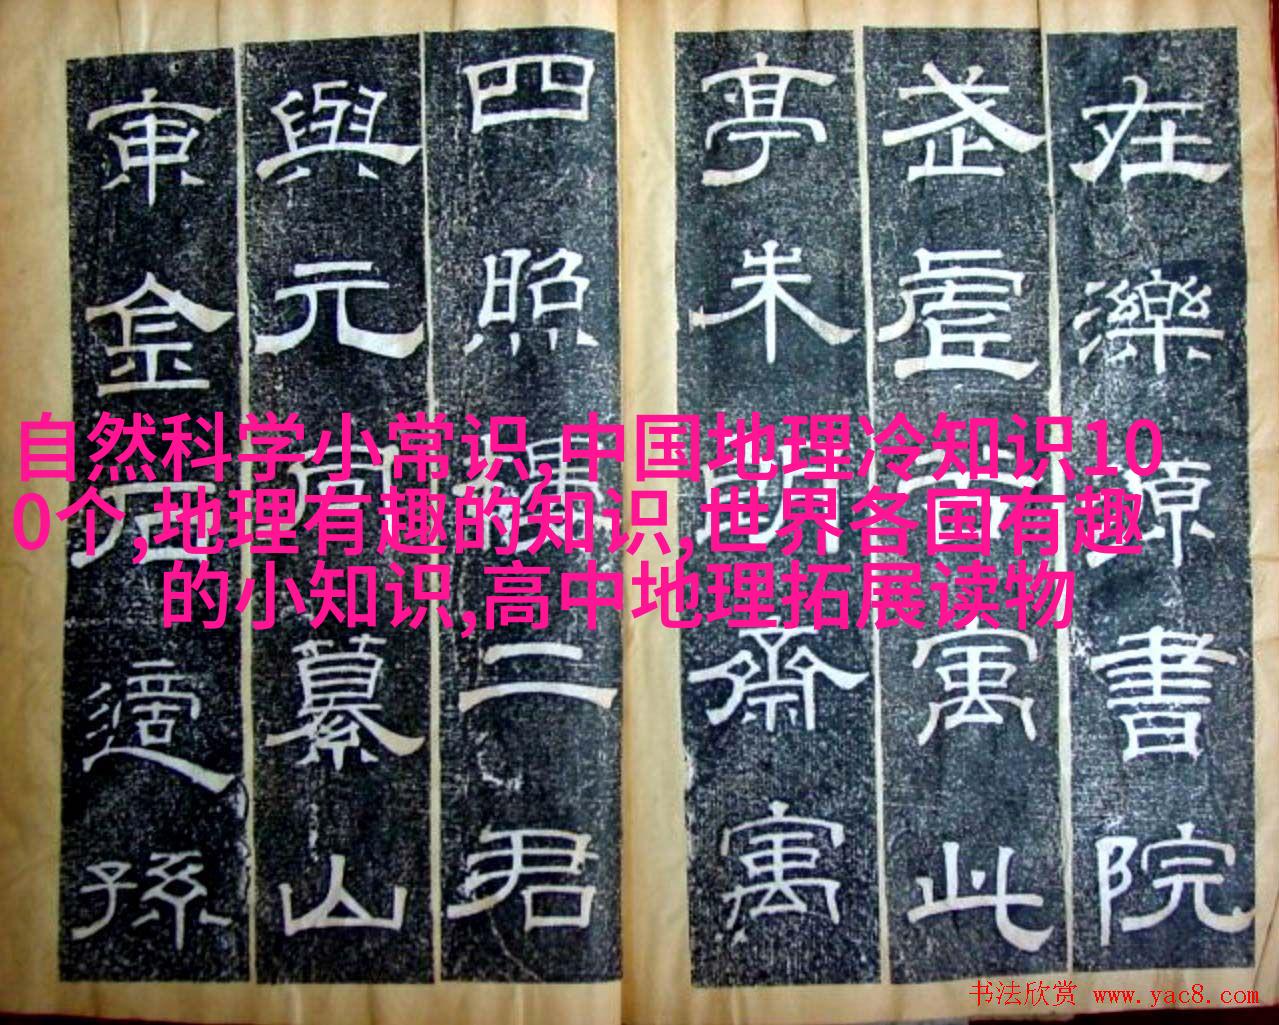 在濼源書院
武虛寓此
亭朱朗齋寓
四照樓二君
與元同纂山
東金石適孫
自然科学小常识,中国地理冷知识10
0个,地理有趣的知识,世界各国有趣
的小知识,高中地理拓展读物
书法欣赏 www.yac8.com